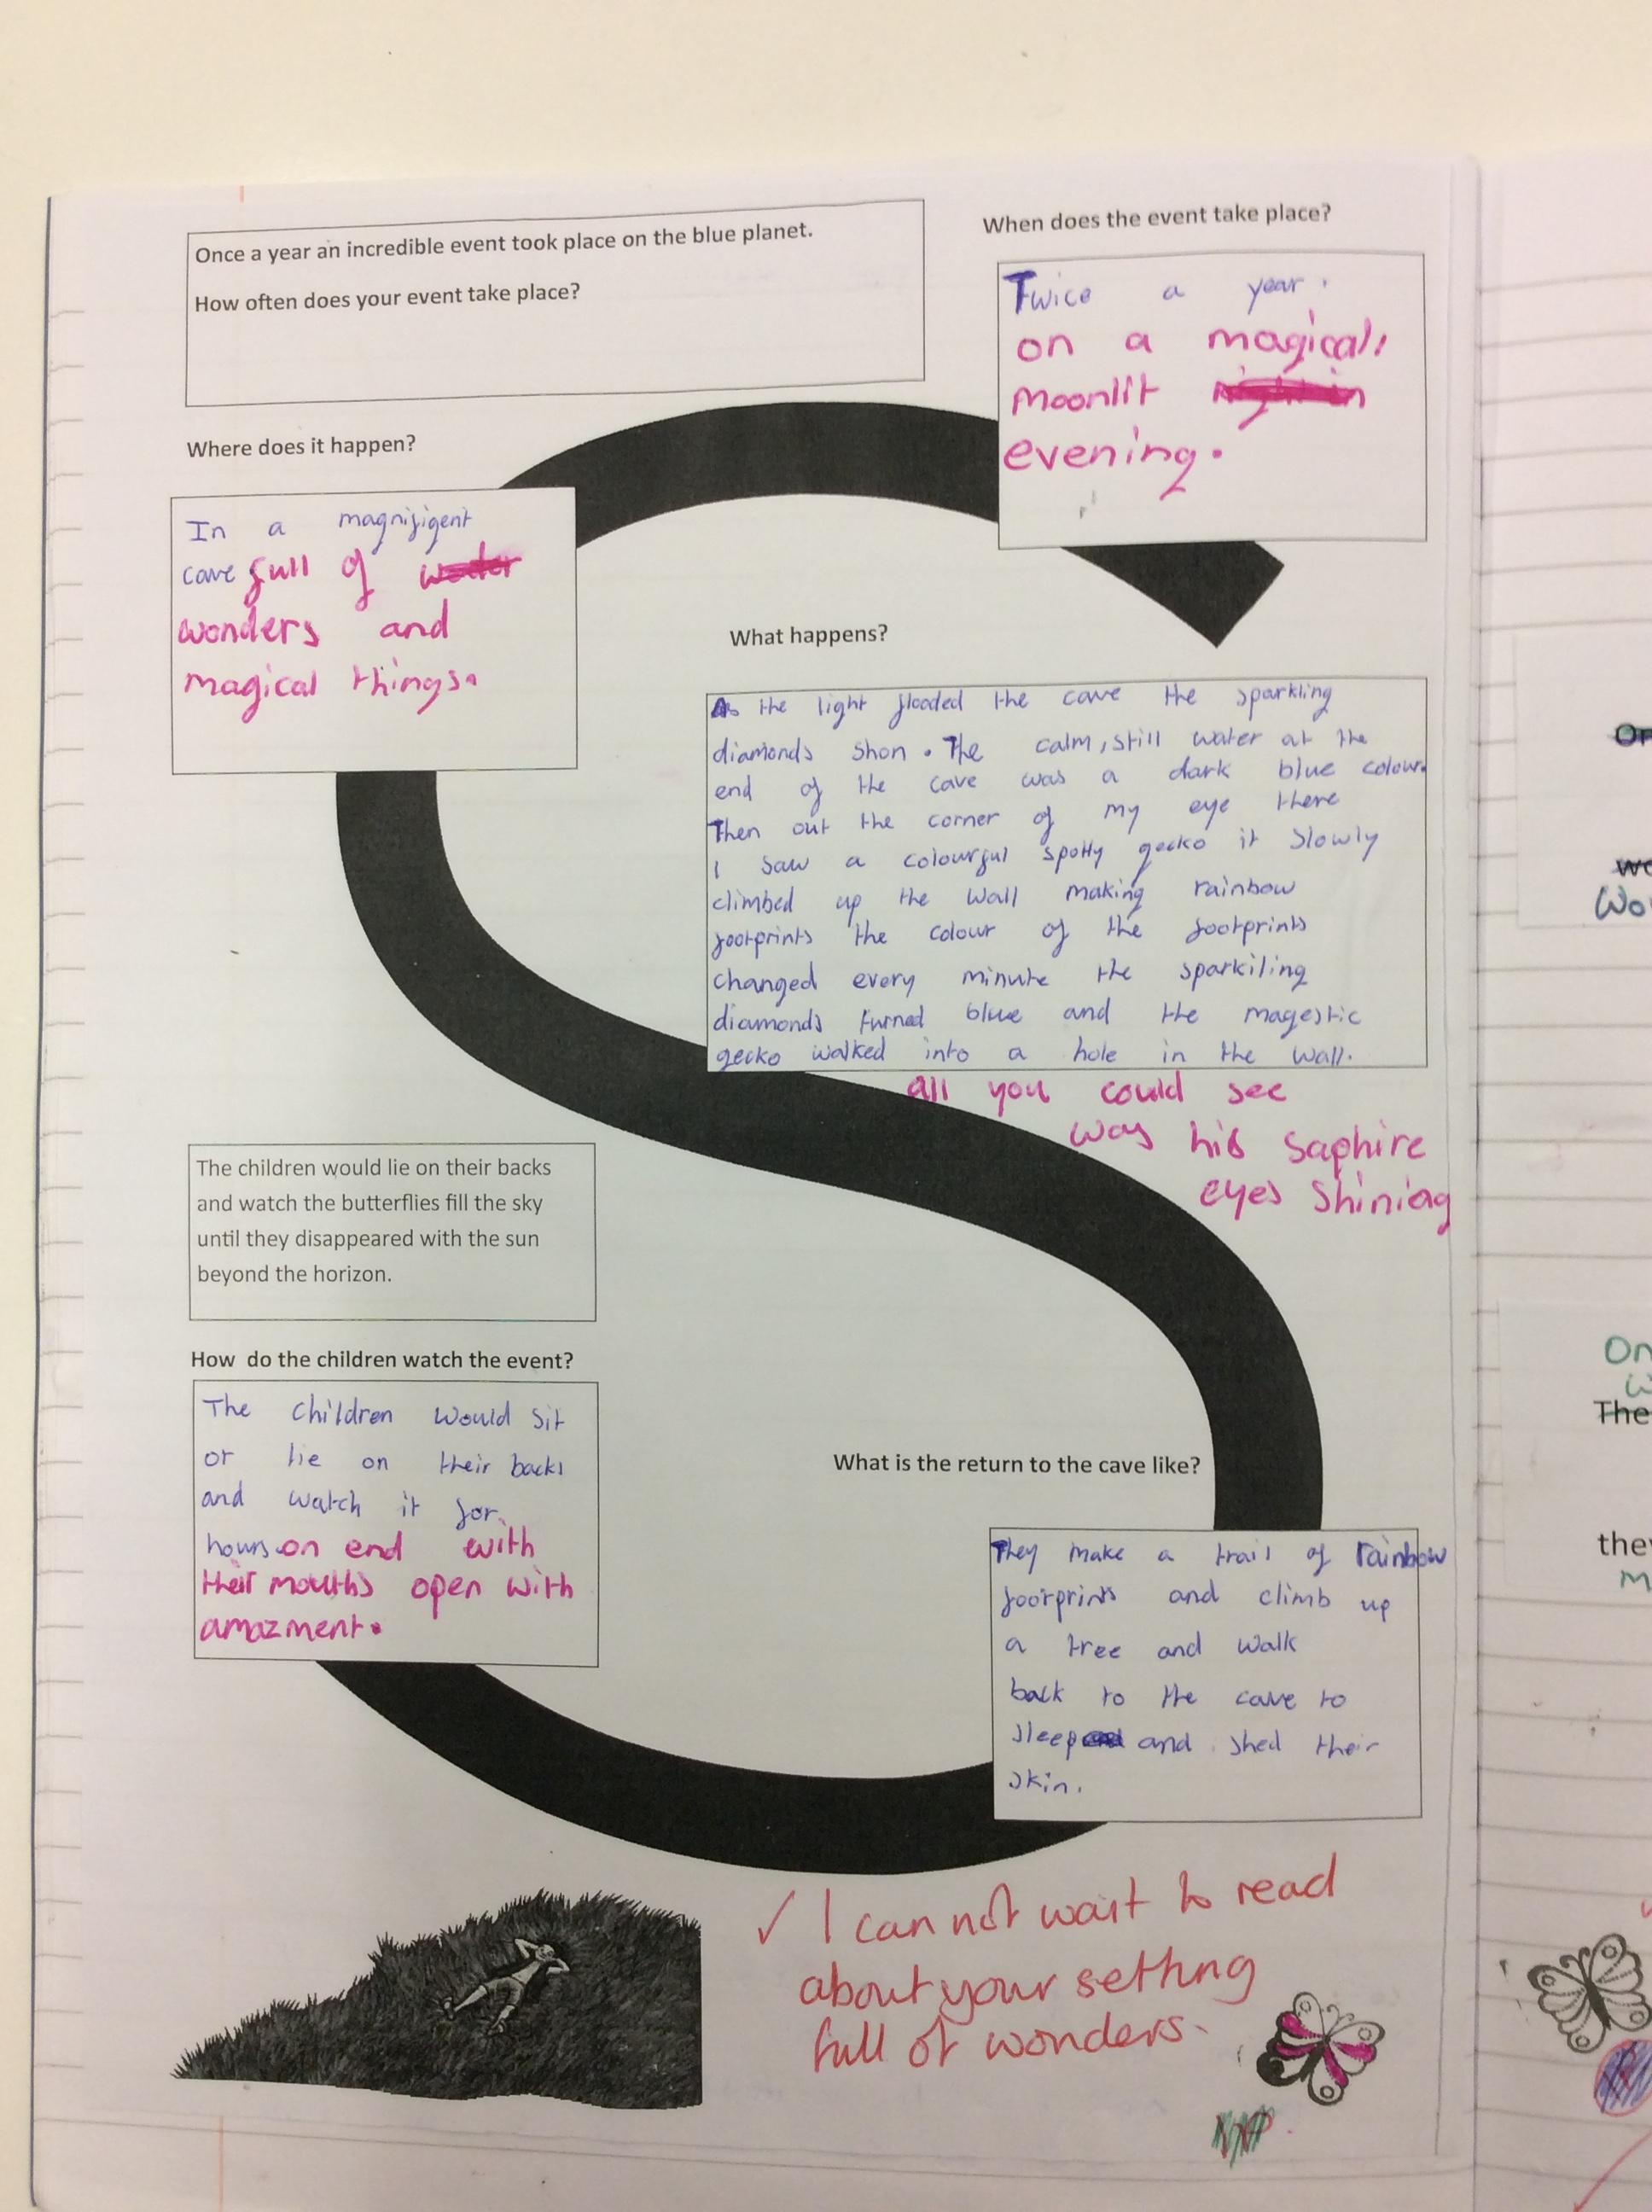 Once a year an incredible event took place on the blue planet.
How often does your event take place?
When does the event take place?
Twice a year.
on a magical,
moonlit
evening.
Where does it happen?
In a magnifigent
cave full of
wonders and
magical things.
What happens?
As the light flooded the cave the sparkling
diamonds shon. The calm, still water at the
end of the cave was a dark blue colour.
Then out the corner of my eye there
I saw a colourful spotty gecko it slowly
climbed up the wall making rainbow
footprints the colour of the footprints
changed every minute the sparkiling
diamonds turned blue and the magestic
gecko walked into a hole in the wall.
all you could see
was his saphire
eyes shining
The children would lie on their backs
and watch the butterflies fill the sky
until they disappeared with the sun
beyond the horizon.
How do the children watch the event?
The children would sit
or lie on their backs
and watch it for
hours on end with
their mouths open with
amazment.
What is the return to the cave like?
They make a trail of rainbow
footprints and climb up
a tree and walk
back to the cave to
sleep and shed their
skin.
✓ I can not wait to read
about your setting
full of wonders.
On
The
they